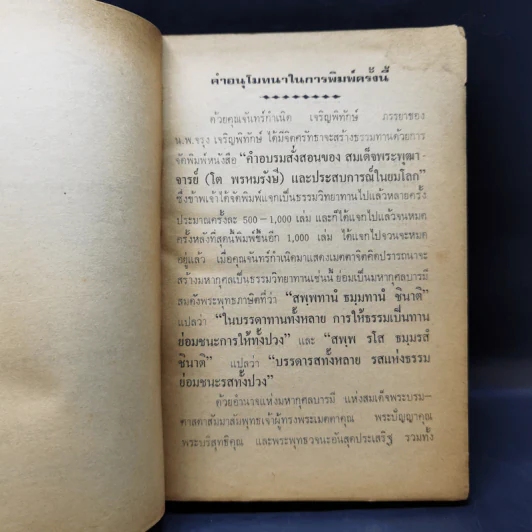 คำอนุโมทนาในการพิมพ์ครั้งนี้
ด้วยคุณจันทร์กำเนิด เจริญพิทักษ์ ภรรยาของ
น.พ.จรุง เจริญพิทักษ์ ได้มีจิตศรัทธาจะสร้างธรรมทานด้วยการ
จัดพิมพ์หนังสือ “คำอบรมสั่งสอนของ สมเด็จพระพุฒา-
จารย์ (โต พรหมรังษี) และประสบการณ์ในยมโลก”
ซึ่งข้าพเจ้าได้จัดพิมพ์แจกเป็นธรรมวิทยาทานไปแล้วหลายครั้ง
ประมาณครั้งละ 500-1,000 เล่ม และก็ได้แจกไปแล้วจนหมด
ครั้งหลังที่สุดนี้พิมพ์ขึ้นอีก 1,000 เล่ม ได้แจกไปจวนจะหมด
อยู่แล้ว เมื่อคุณจันทร์กำเนิดมาแสดงเมตตาจิตคิดปรารถนาจะ
สร้างมหากุศลเป็นธรรมวิทยาทานเช่นนี้ ย่อมเป็นมหากุศลบารมี
สมดังพระพุทธภาษิตที่ว่า “สพฺพทานํ ธมฺมทานํ ชินาติ”
แปลว่า “ในบรรดาทานทั้งหลาย การให้ธรรมเป็นทาน
ย่อมชนะการให้ทั้งปวง” และ “สพฺพ รโส ธมฺมรสํ
ชินาติ” แปลว่า “บรรดารสทั้งหลาย รสแห่งธรรม
ย่อมชนะรสทั้งปวง”
ด้วยอำนาจแห่งมหากุศลบารมี แห่งสมเด็จพระบรม-
ศาสดาสัมมาสัมพุทธเจ้าผู้ทรงพระเมตตาคุณ พระปัญญาคุณ
พระบริสุทธิคุณ และพระพุทธวจนะอันสุดประเสริฐ รวมทั้ง